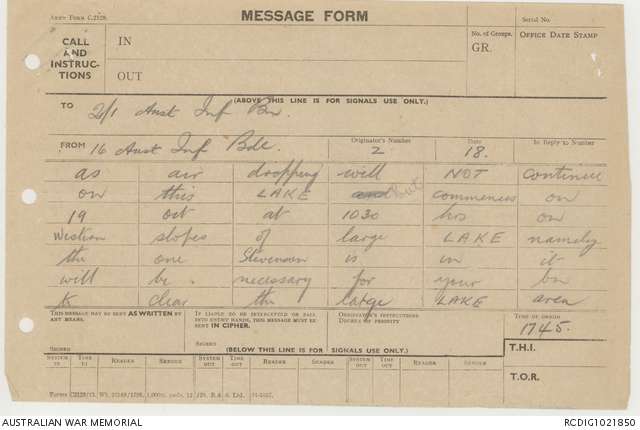 Army Form C.2128.
MESSAGE FORM
Serial No.
CALL AND INSTRUCTIONS
IN
OUT
No. of Groups.
GR.
OFFICE DATE STAMP
(ABOVE THIS LINE IS FOR SIGNALS USE ONLY.)
TO 2/1 Aust Inf Bn.
FROM 16 Aust Inf Bde
Originator's Number 2
Date 18.
In Reply to Number
as air dropping will NOT continue
on this LAKE and but commences on
19 oct at 1030 hrs on
Western slopes of large LAKE namely
the one Stevenson is in it
will be necessary for your bn
to clear the large LAKE area
THIS MESSAGE MAY BE SENT AS WRITTEN BY ANY MEANS.
SIGNED
IF LIABLE TO BE INTERCEPTED OR FALL INTO ENEMY HANDS, THIS MESSAGE MUST BE SENT IN CIPHER.
SIGNED
ORIGINATOR'S INSTRUCTIONS
DEGREE OF PRIORITY
TIME OF ORIGIN
1745.
(BELOW THIS LINE IS FOR SIGNALS USE ONLY.)
T.H.I.
SYSTEM IN TIME IN READER SENDER SYSTEM OUT TIME OUT READER SENDER SYSTEM OUT TIME OUT READER SENDER
T.O.R.
AUSTRALIAN WAR MEMORIAL
RCDIG1021850